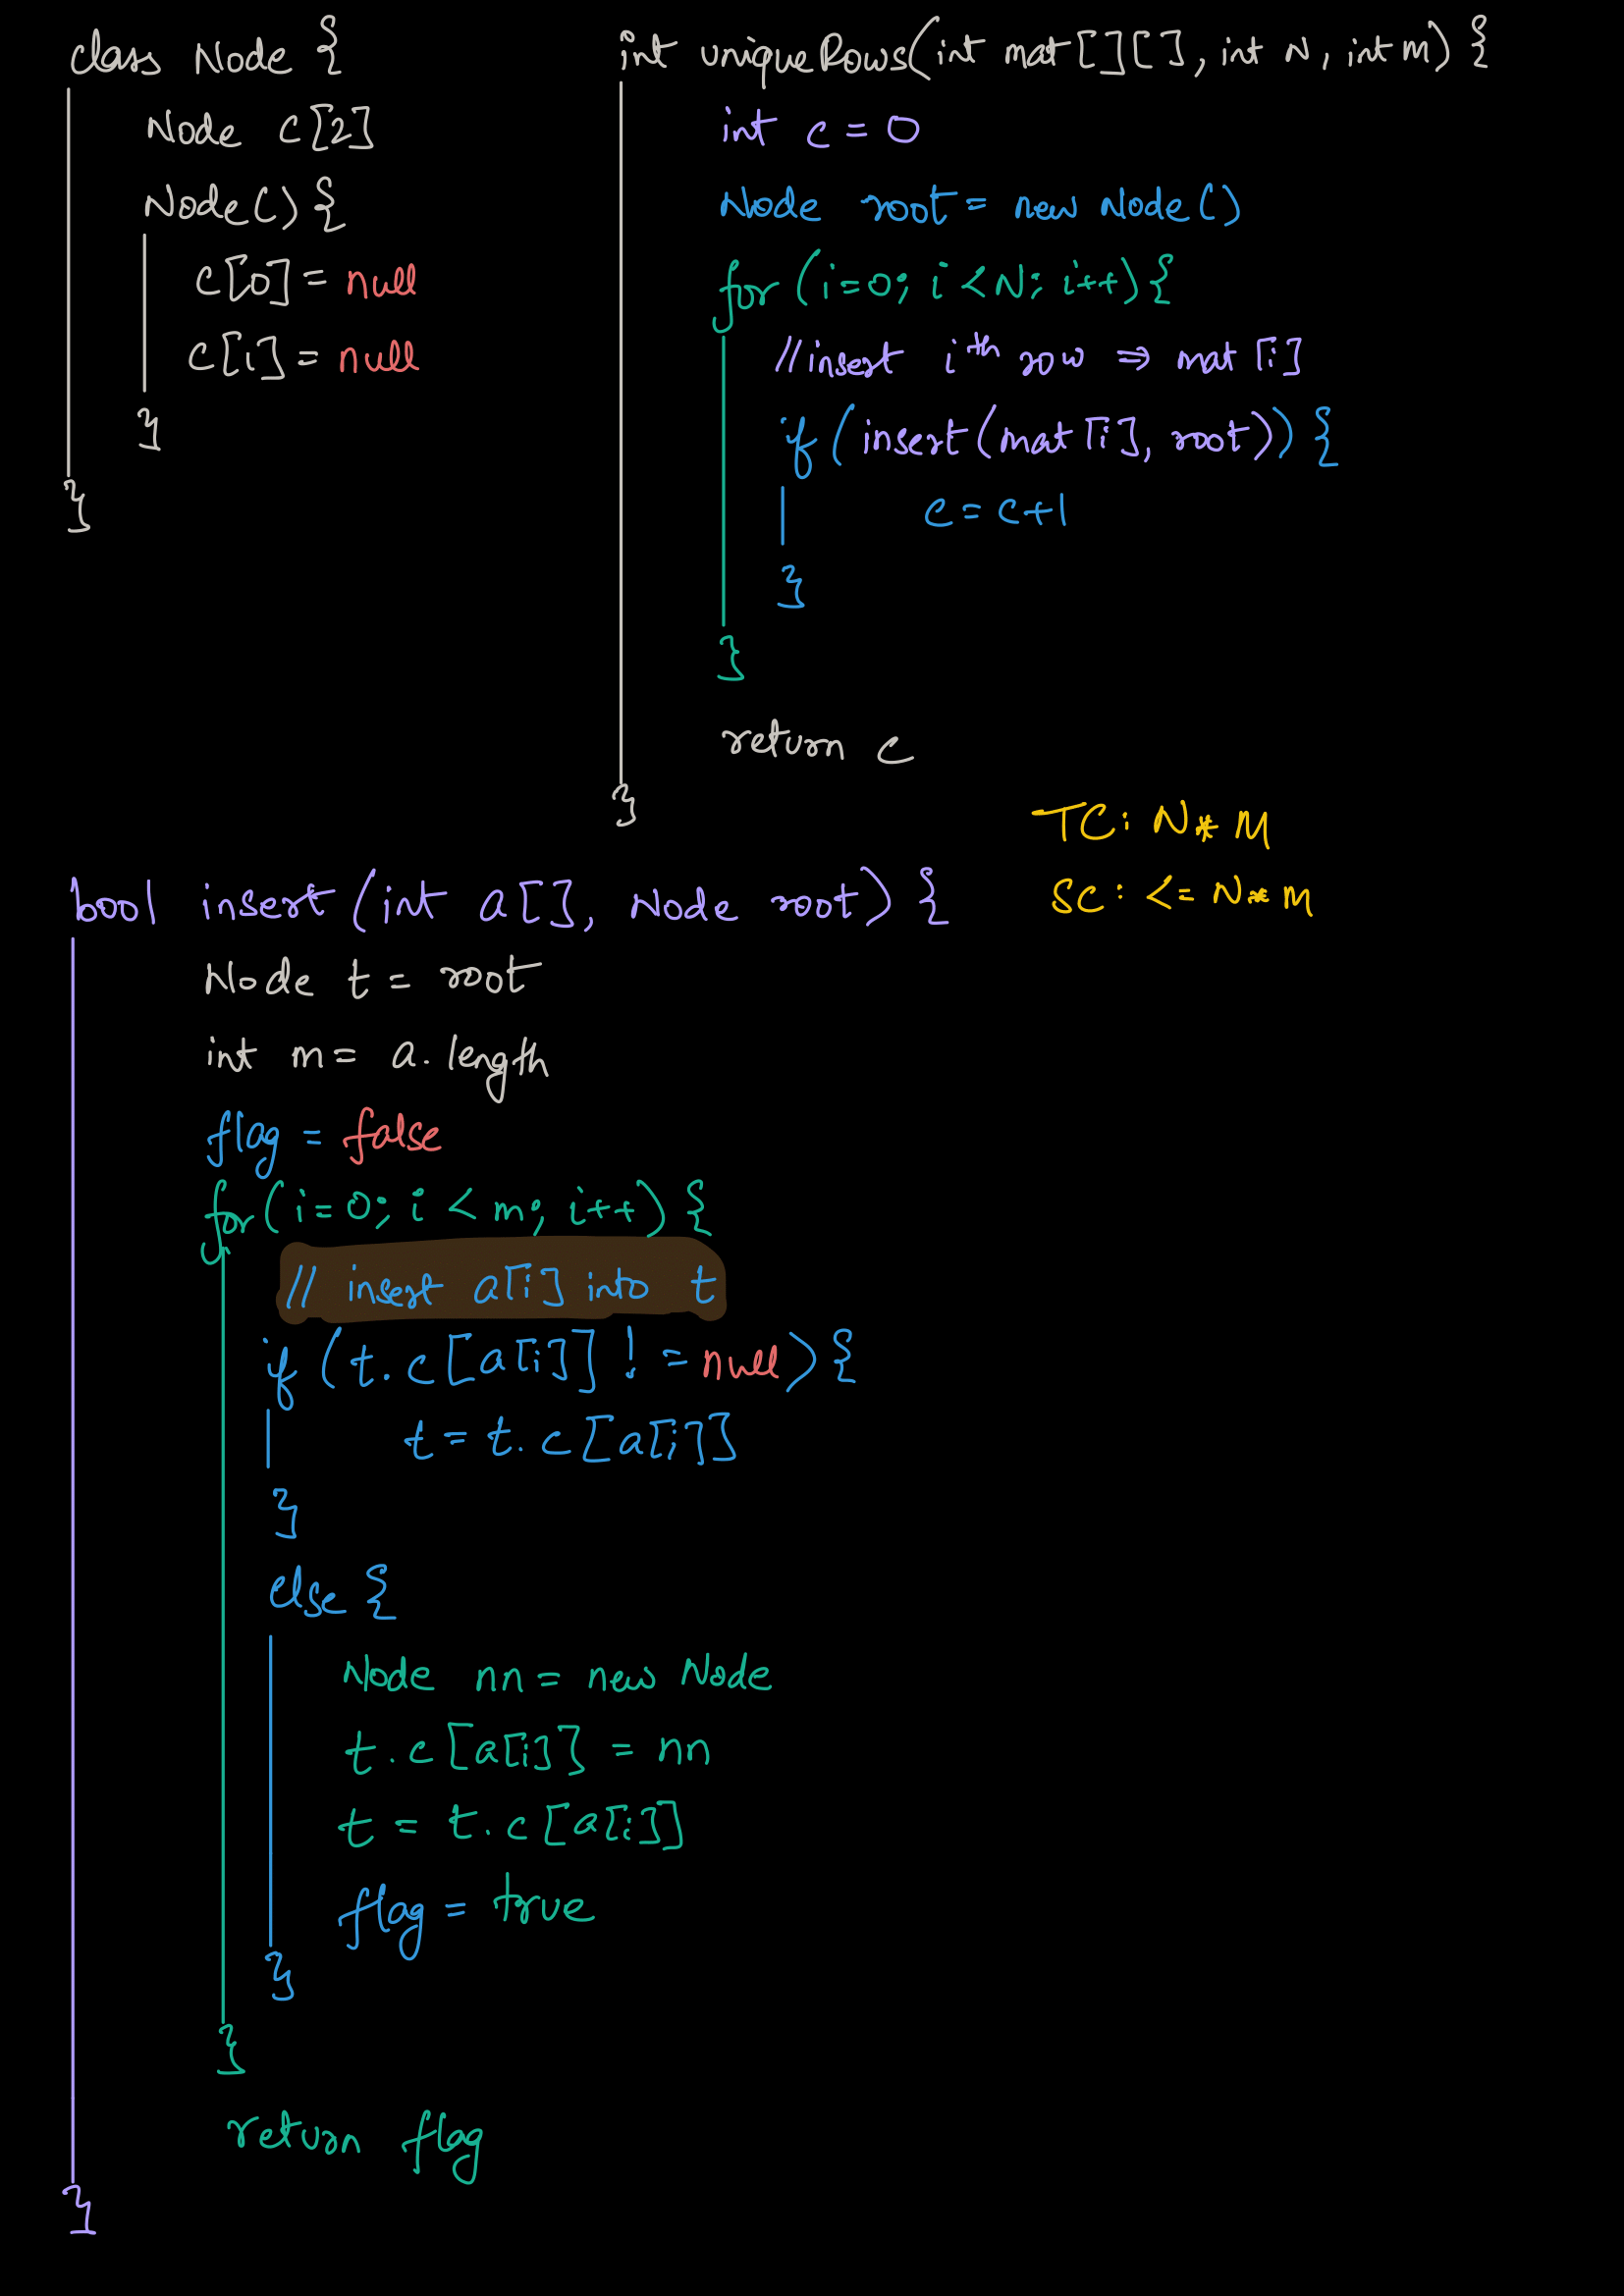 class Node {
Node c[2]
Node() {
c[0] = null
c[1] = null
}
}
int uniqueRows(int mat[][], int N, int M) {
int c = 0
Node root = new Node()
for (i=0; i<N; i++) {
// insert ith row ⇒ mat[i]
if (insert(mat[i], root)) {
c = c+1
}
}
return c
}
TC: N*M
SC: <= N*M
bool insert(int a[], Node root) {
Node t = root
int m = a.length
flag = false
for (i=0; i<m; i++) {
// insert a[i] into t
if (t.c[a[i]] != null) {
t = t.c[a[i]]
}
else {
Node nn = new Node
t.c[a[i]] = nn
t = t.c[a[i]]
flag = true
}
}
return flag
}